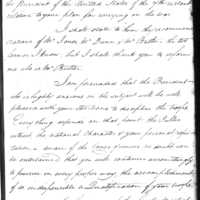 the President of the United States of the 7th instant
relative to your plan for carrying on the war.
I shall state to him the recommend-
ations of Mr Jones, Mr Gunn & Mr Butler - the two
former I know but I shall thank you to inform
me who is Mr Butler.
I am persuaded that the President
who is highly anxious on the subject will be well
pleased with your solicitude to discipline the troops.
Every thing depends on that point. The Public
interest, the national character & your personal reputa-
tion - aware of the consequences, no doubt can
be entertained that you will continue unremittingly
to pursue in every proper way, the accomplishment
of so indispensible a qualification of your troops.